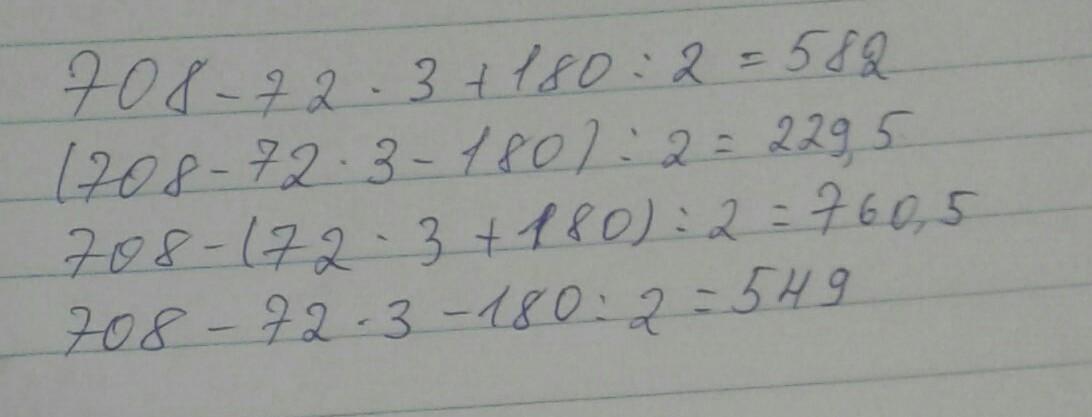 708 - 72 · 3 + 180 : 2 = 582
(708 - 72 · 3 - 180) : 2 = 229,5
708 - (72 · 3 + 180) : 2 = 760,5
708 - 72 · 3 - 180 : 2 = 549